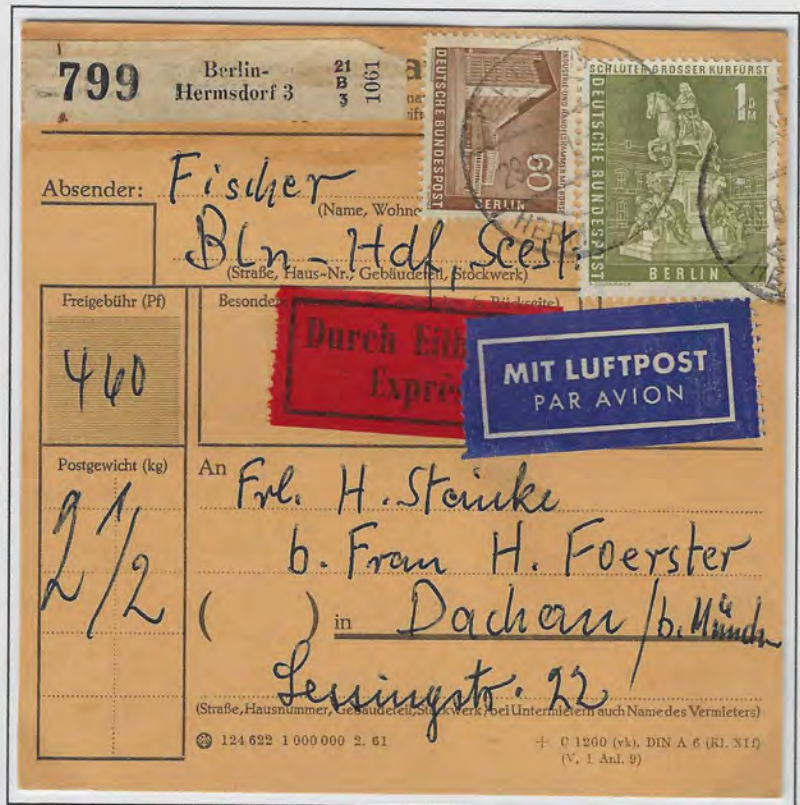 799 Berlin-Hermsdorf 3 21 B 3 1061
INDUSTRIE UND HANDELSKAMMER MIT BÖRSE
DEUTSCHE BUNDESPOST
60
BERLIN
29
SCHLÜTER GROSSER KURFÜRST
1 DM
DEUTSCHE BUNDESPOST
BERLIN
Absender: Fischer
(Name, Wohno
Bln-Hdf, Seestr.
(Straße, Haus-Nr., Gebäudeteil, Stockwerk)
Freigebühr (Pf)
460
Besonde Rückseite)
Durch Eilb
Exprès
MIT LUFTPOST
PAR AVION
Postgewicht (kg)
2 1/2
An Frl. H. Stainke
b. Frau H. Foerster
( ) in Dachau / b. Münch
Lessingstr. 22
(Straße, Hausnummer, Gebäudeteil, Stockwerk, bei Untermietern auch Name des Vermieters)
124 622 1 000 000 2. 61
+ C 1260 (vk). DIN A 6 (Kl. XI f)
(V, 1 Anl. 9)